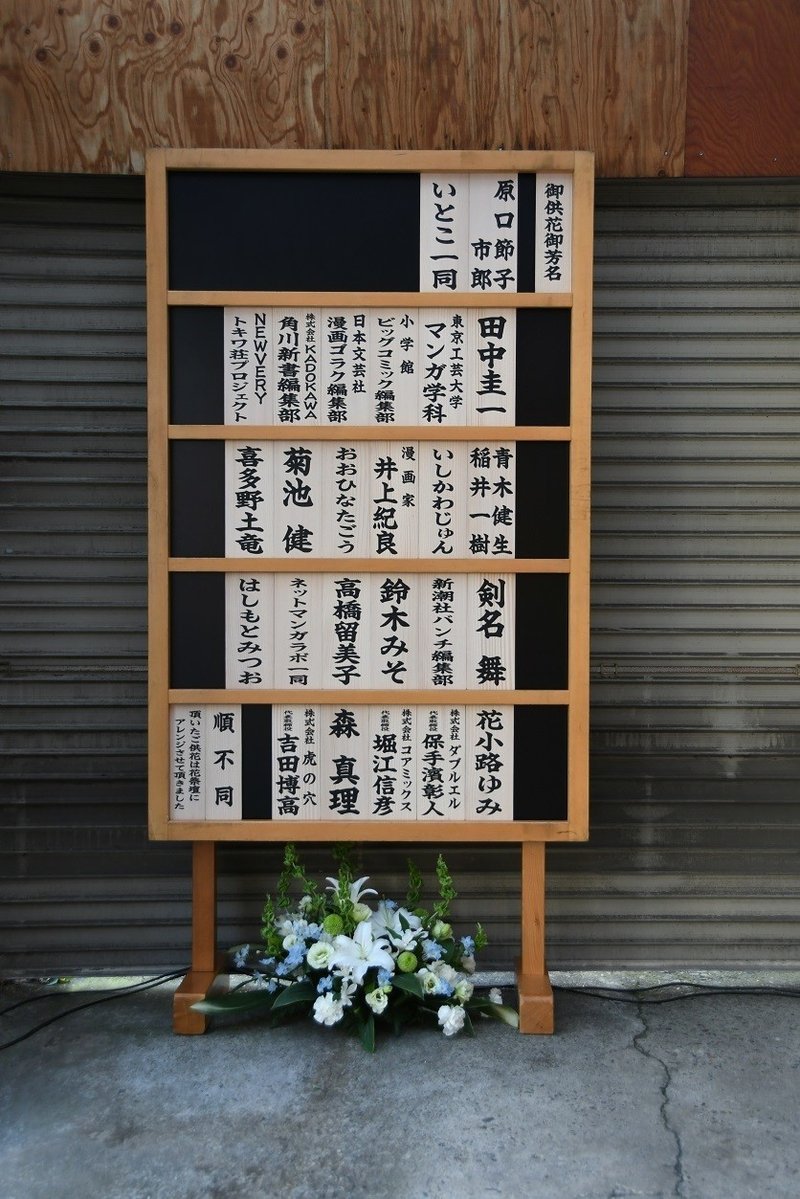 御供花御芳名
原口節子
市郎
いとこ一同
田中圭一
東京工芸大学
マンガ学科
小学館
ビッグコミック編集部
日本文芸社
漫画ゴラク編集部
株式会社KADOKAWA
角川新書編集部
NEWVERY
トキワ荘プロジェクト
青木健生
稲井一樹
いしかわじゅん
漫画家
井上紀良
おおひなたごう
菊池健
喜多野土竜
剣名舞
新潮社バンチ編集部
鈴木みそ
高橋留美子
ネットマンガラボ一同
はしもとみつお
花小路ゆみ
株式会社ダブルエル
代表取締役保手濱彰人
株式会社コアミックス
代表取締役堀江信彦
森真理
株式会社虎の穴
代表取締役吉田博高
順不同
頂いたご供花は花祭壇に
アレンジさせて頂きました